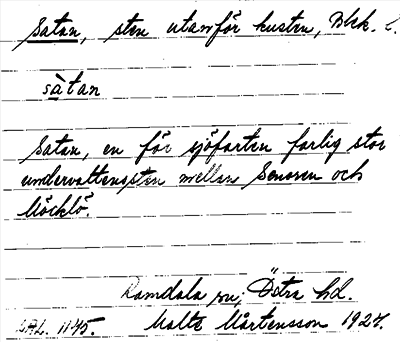 Satan, sten utanför kusten, Blek. l.
sàtan
Satan, en för sjöfarten farlig stor
undervattenssten mellan Senoren och
Möcklö.
Ramdala sn, Östra hd.
LAL. 1175. Malte Mårtensson 1927.